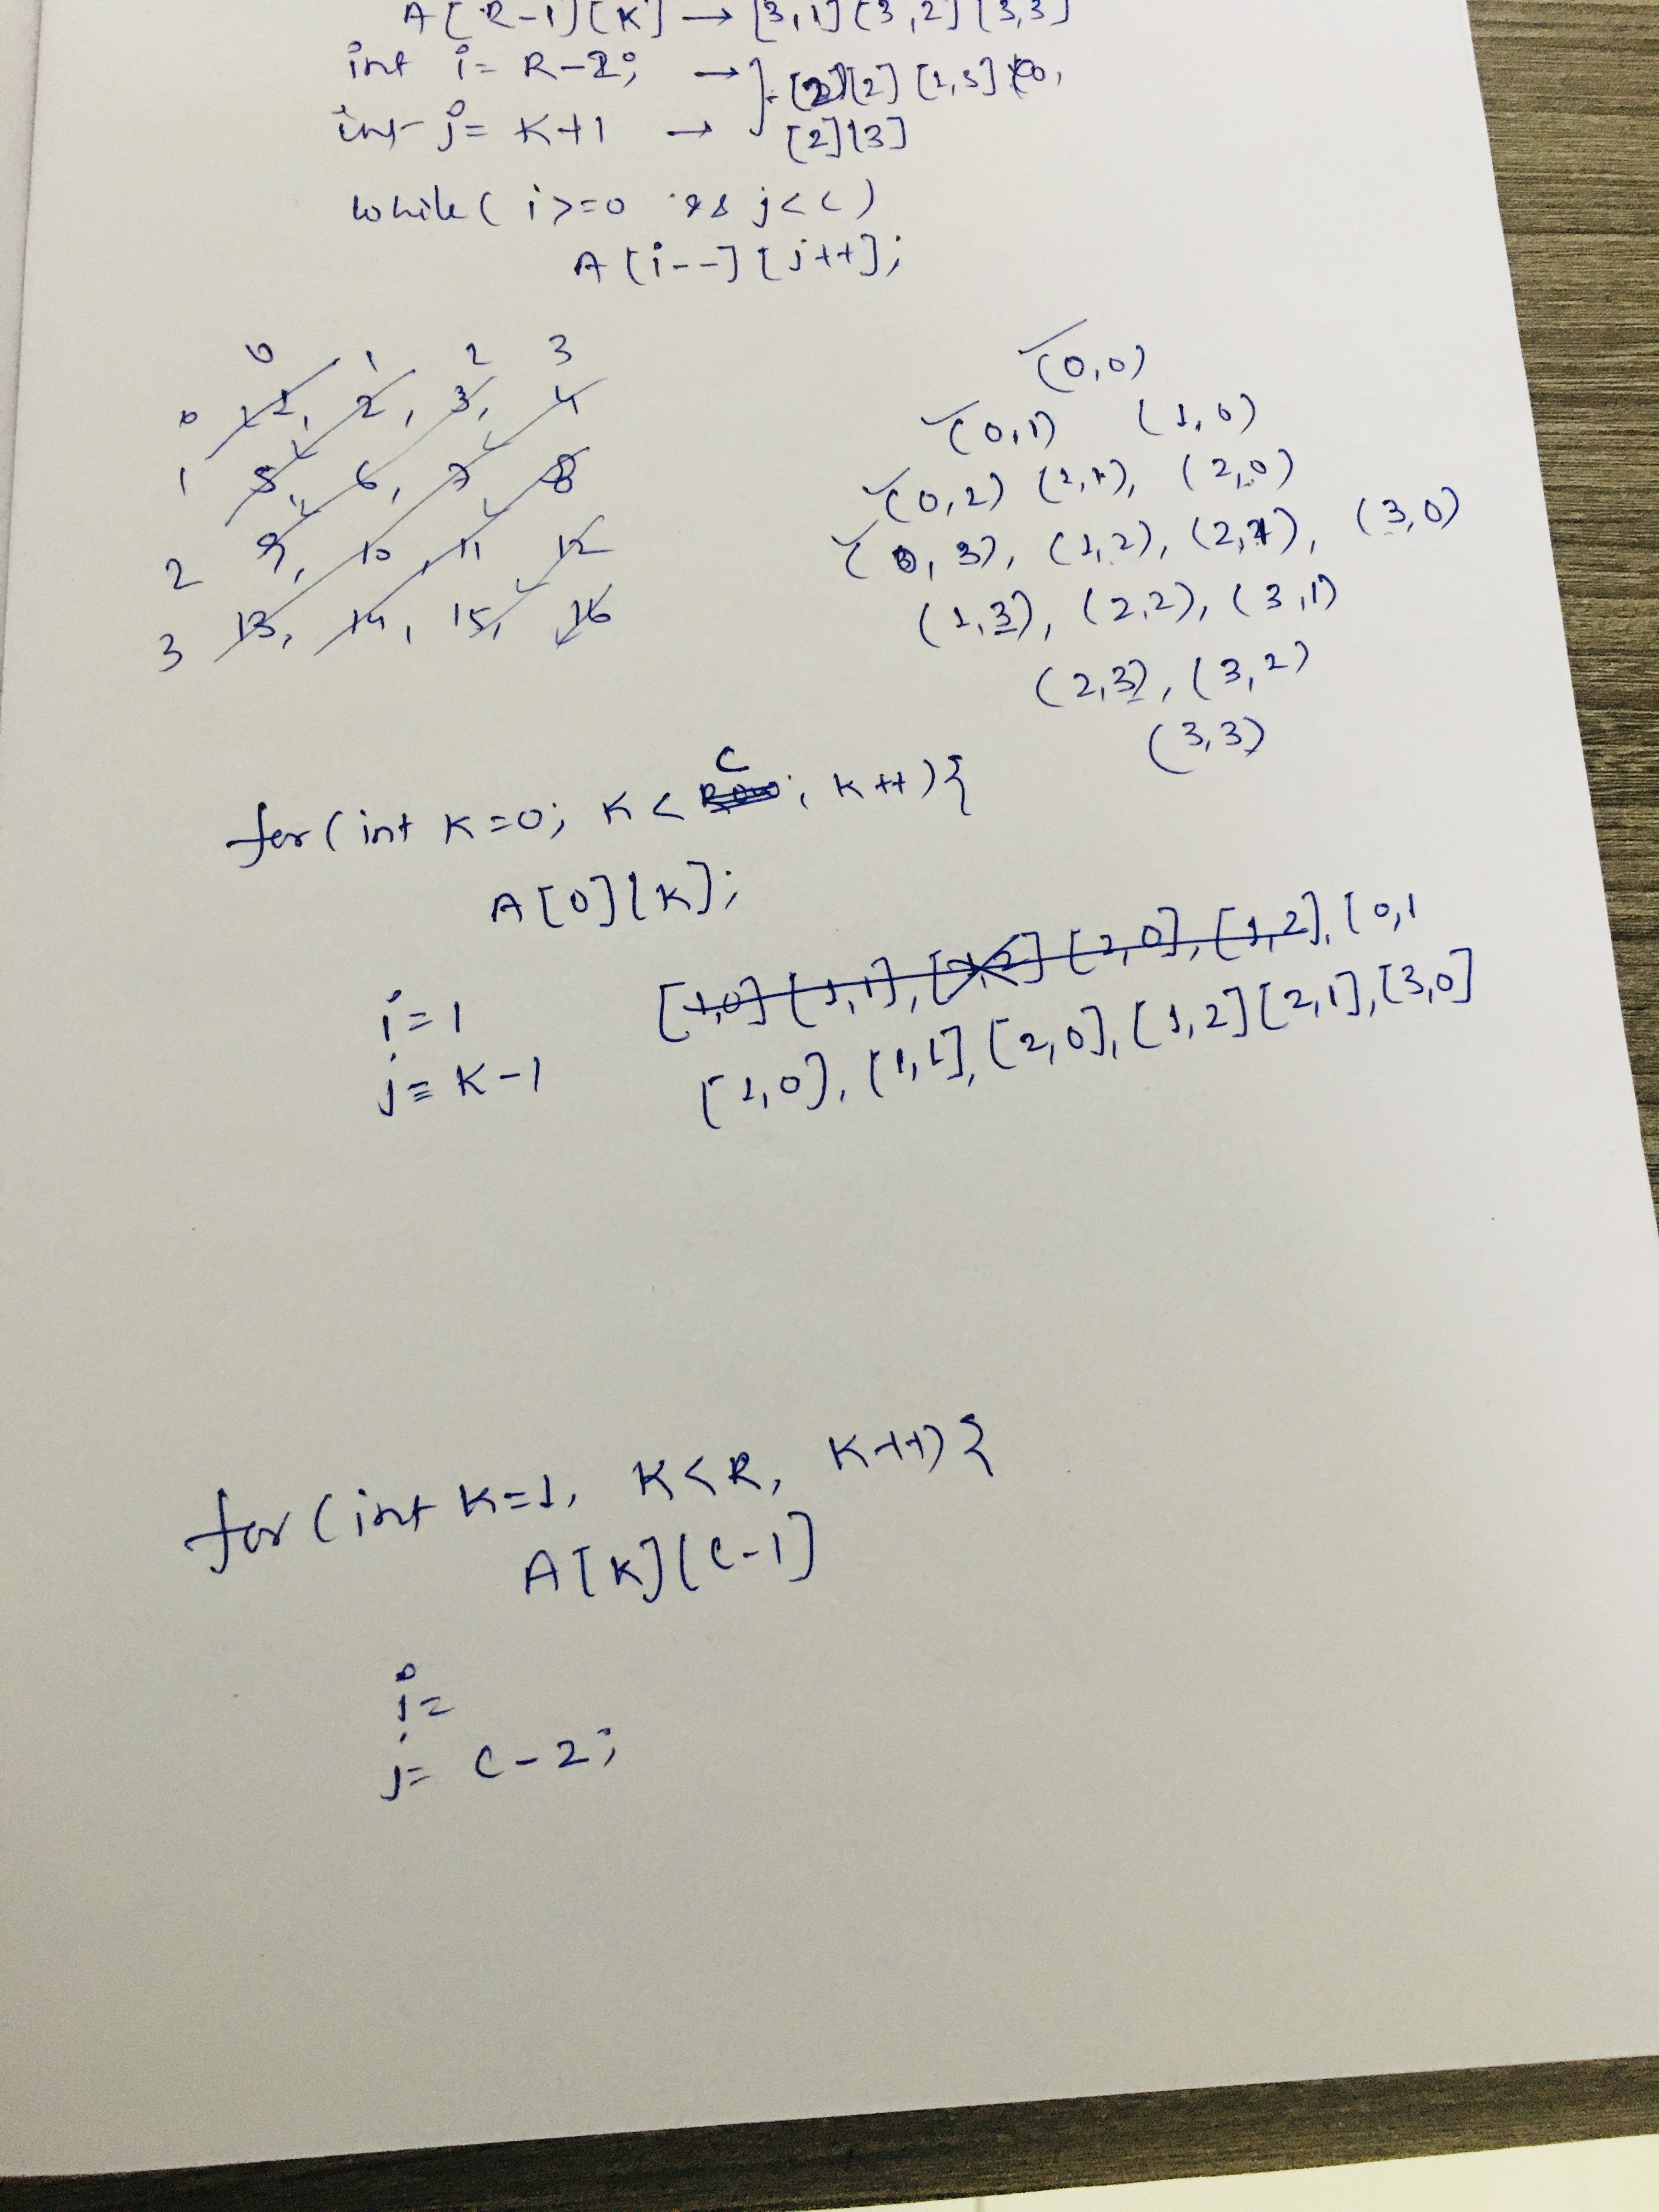 A[R-1][K] → [3,1] [3,2] [3,3]
int i = R-2; → [2][2] [1,3]
int j = K+1 → [2][3]
while( i>=0 && j<C)
A[i--][j++];
0 1 2 3
0 1, 2, 3, 4
1 5, 6, 7 8
2 9, 10, 11 12
3 13, 14, 15, 16
(0,0)
(0,1) (1,0)
(0,2) (1,1), (2,0)
(0,3), (1,2), (2,1), (3,0)
(1,3), (2,2), (3,1)
(2,3), (3,2)
(3,3)
for(int K=0; K<C; K++){
A[0][K];
[1,0] [1,1], [2,0], [1,2], [0,1
i=1
j=K-1
[1,0], [1,1], [2,0], [1,2] [2,1], [3,0]
for(int K=1, K<R, K++){
A[K][C-1]
i=
j= C-2;